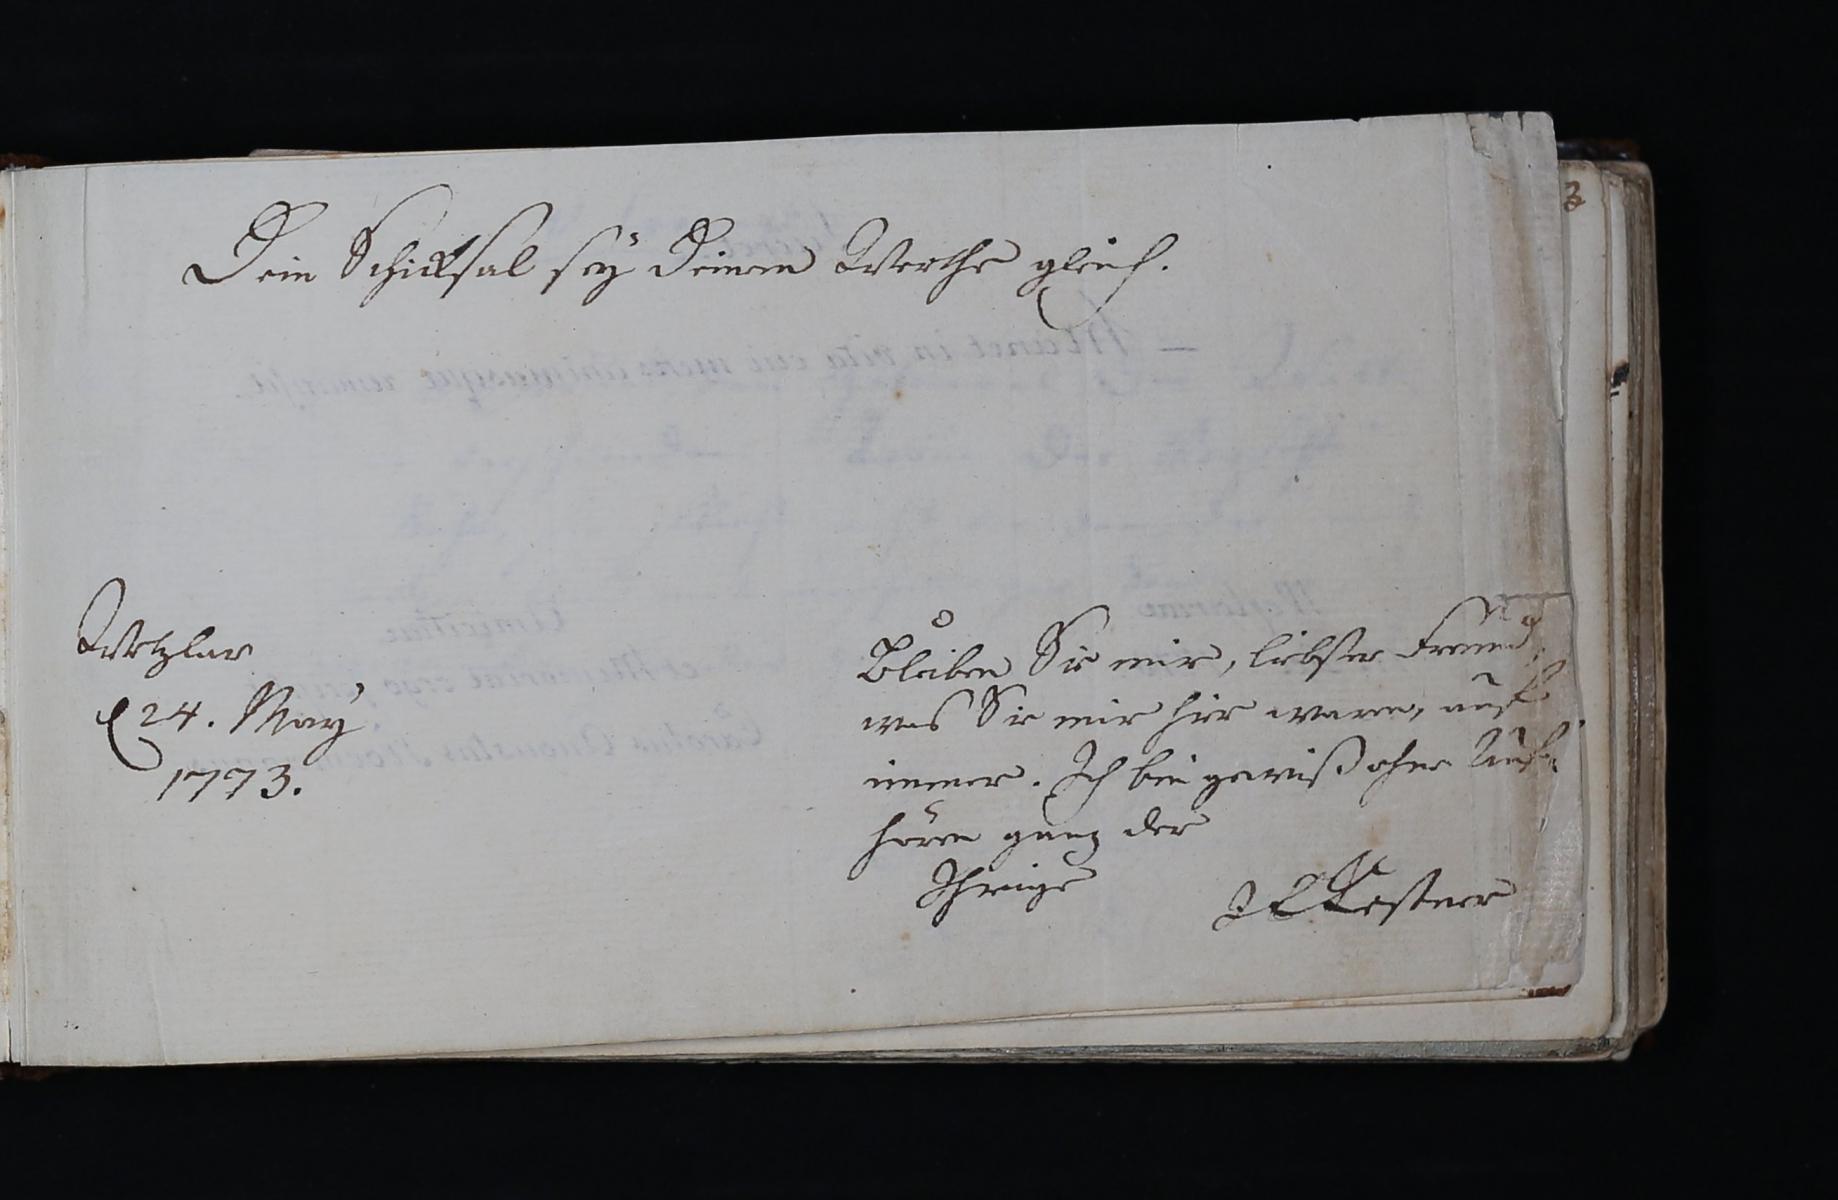 Dein Schicksal seÿ Deinem Werthe gleich.
Wetzlar
d 24. Maÿ
1773.
Bleiben Sie mir, liebster Freund,
was Sie mir hier waren, auf
immer. Ich bin gewiß ohne Auf-
hören ganz der
Ihrige
JCKestner
3